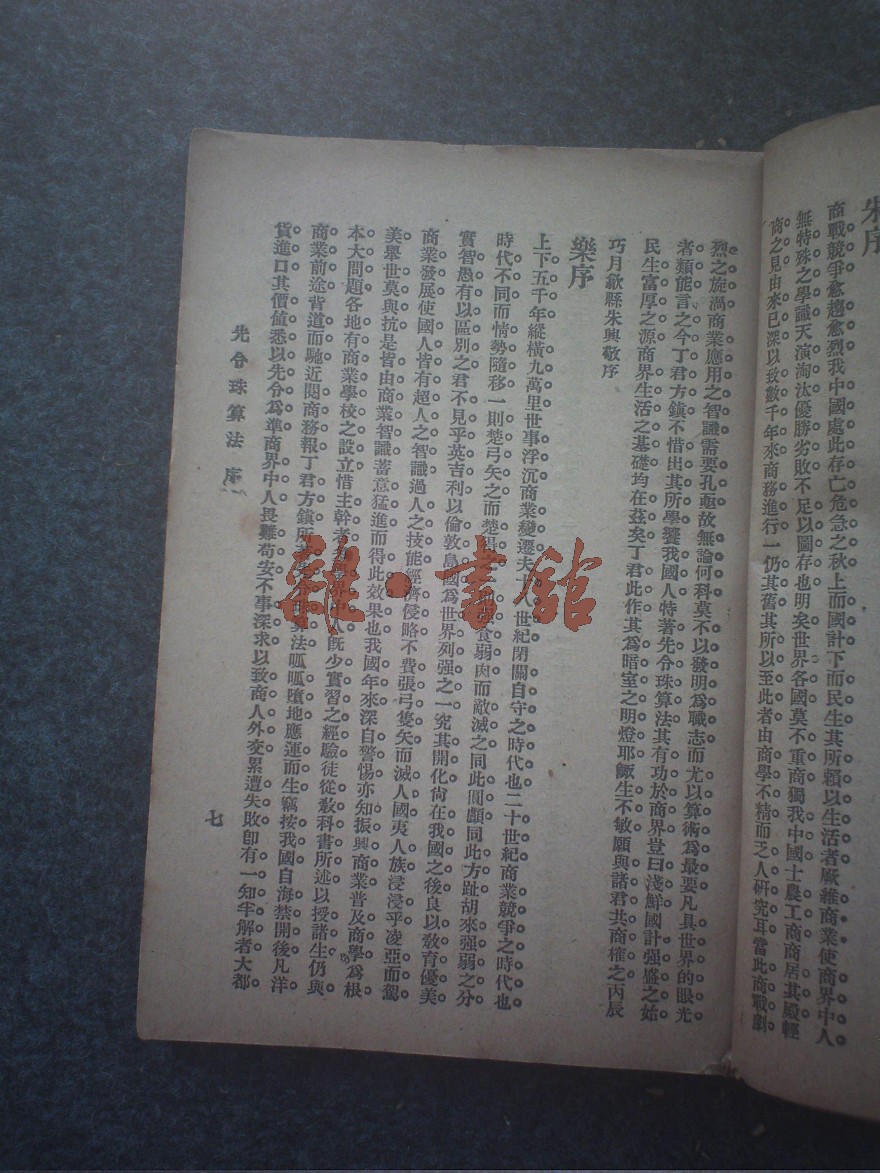 朱序
商戰競爭愈趨愈烈我中國處此存亡危急之秋上而國計下而民生其所賴以生活者厥維商業使商界中人
無特殊之學識天演淘汰優勝劣敗不足以圖存也明矣世界各國莫不重商獨我中國士農工商商居其殿輕
商之見由來已深以致數千年來商務進行一仍其舊其所以至此者由商學不精而乏人研究耳當此商戰劇
烈之旋渦商業應用之智識需要孔亟故無論何科莫不以發明爲職志而尤以算術爲最要凡具世界的眼光
者類能言之今丁君方鎮不惜出其所學饗我國人特著先令珠算法其有功於商界豈曰淺鮮國計强盛之始
民生富厚之源商界生活之基礎均在茲矣丁君此作其爲暗室之明燈耶鯫生不敏願與諸君共商榷之丙辰
巧月歙縣朱興敬序
樂序
上下五千年縱橫九萬里世事浮沉商業變遷夫十八世紀閉關自守之時代也二十世紀商業競爭之時代也
時代不同而情勢隨移一則楚弓矢之而楚得之一則强食弱肉而敵滅之同此圓顱同此方趾胡來强弱之分
實智愚有以區別之君不見乎英吉利以倫敦島國爲世界列强之一究其開化尙在我國之後良以敎育優美
商業發展使國人皆有超人之智識過人之技能經濟侵略不費張弓隻矢而滅人國夷人族浸浸乎凌亞而駕
美舉世莫與抗是皆由商業智識蓄意猛進而得此效果也我國年來深自警惕亦知振興商業普及商學爲根
本大問題各地有商業學校之設立惜主幹者 學界中人旣少實習之經驗徒從敎科書所述以授諸生仍與
商業前途背道而馳近閱商務報丁君方鎮所 算法呱呱墮地應運而生竊按我國自海禁開後凡洋
貨進口其價値悉以先令爲準商界中人畏難苟安不事深求以致商人外交累遭失敗卽有一知半解者大都
先令珠算法 序
七
雜·書館